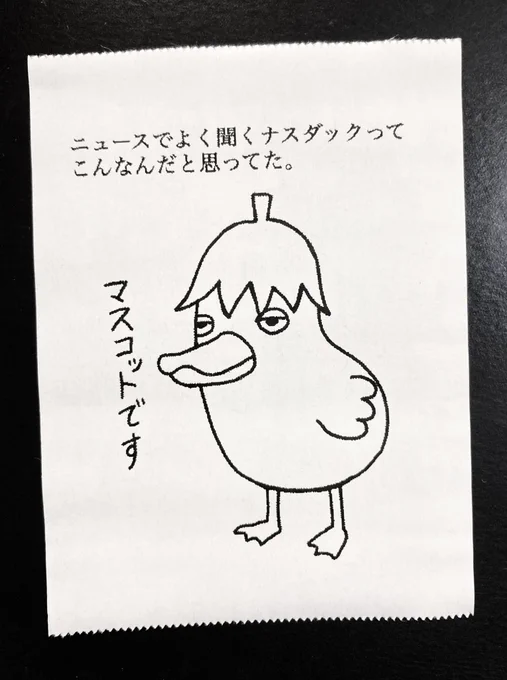 ニュースでよく聞くナスダックって
こんなんだと思ってた。
マスコットです